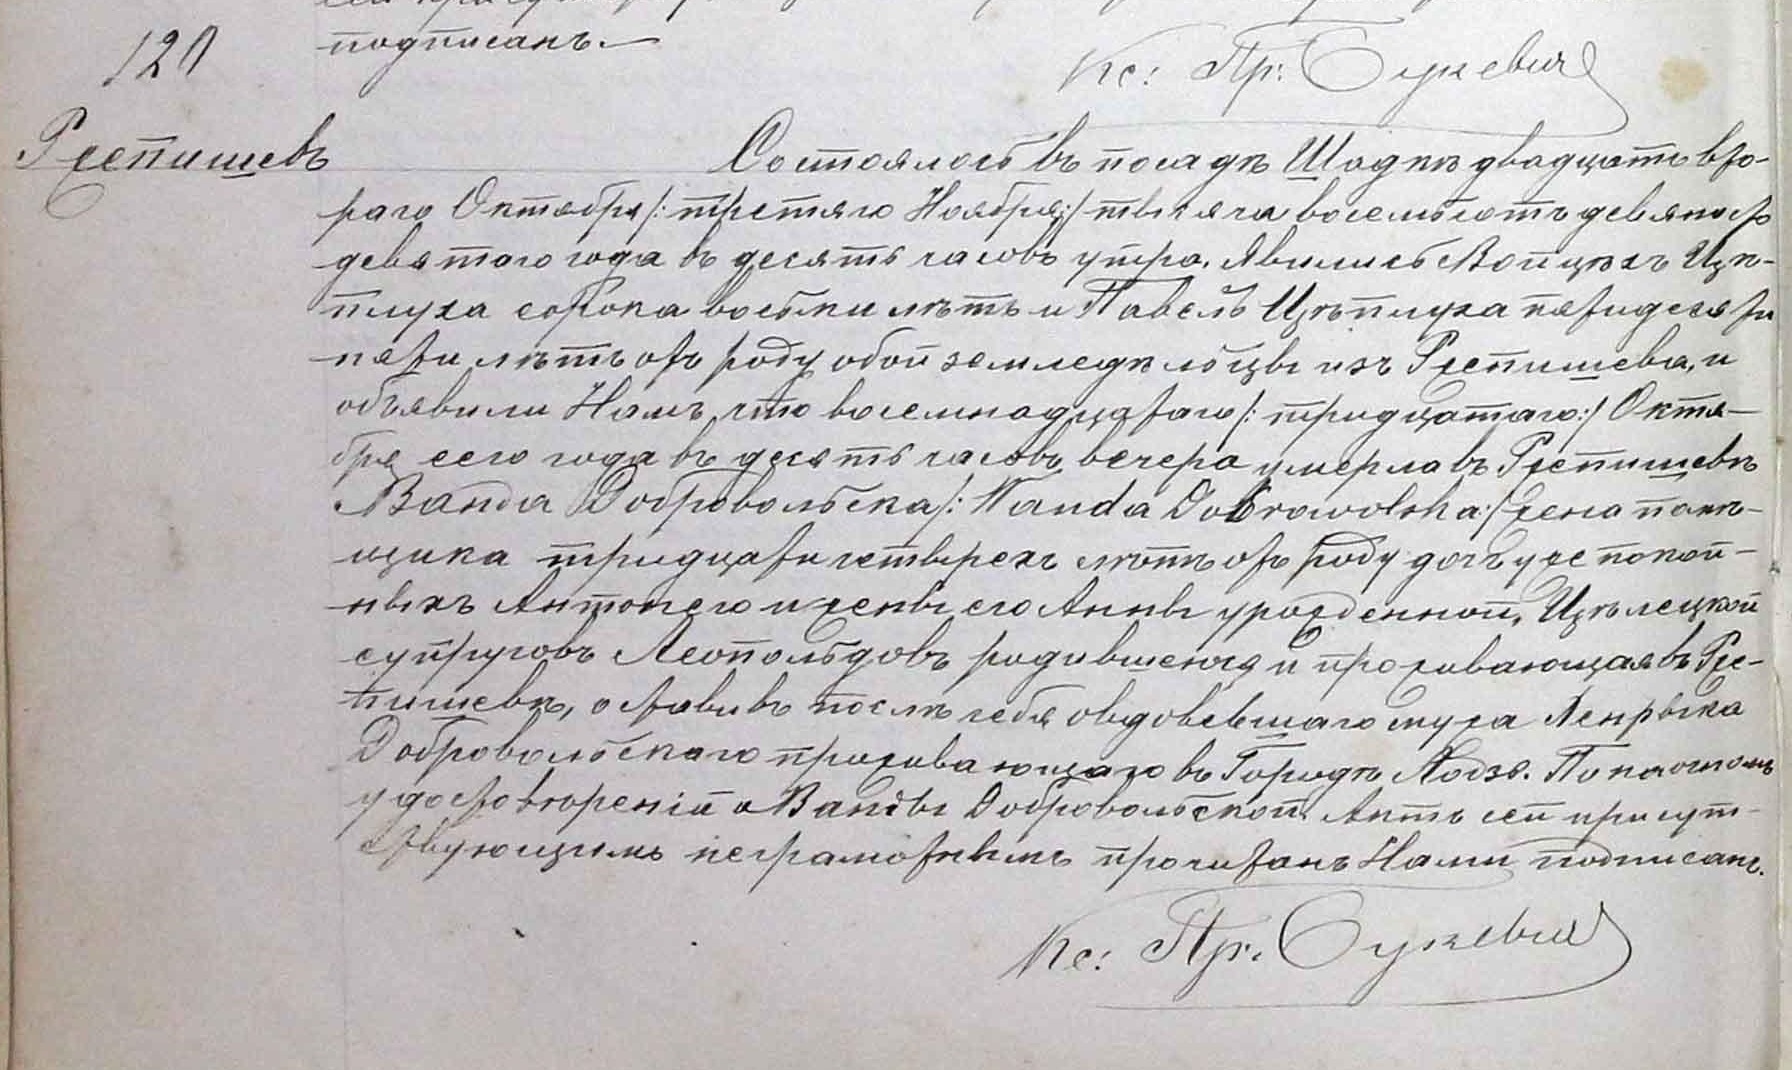 подписанъ.—
120
Кс: Пр: Сулевичъ
Ржепишевъ
Состоялось въ посадѣ Шадкѣ двадцать вто-
раго Октября /: третяго Ноября :/ тысяча восемьсотъ девяносто
девятаго года въ десять часовъ утра. Явились Войцѣхъ Цѣ-
плуха сорока восьми лѣтъ и Павелъ Цѣплуха пятидесяти
пяти лѣтъ отъ роду обой земледѣльцы изъ Ржепишева, и
объявили Намъ, что восемнадцатаго /: тридцатаго :/ Октя-
бря сего года въ десять часовъ вечера умерла въ Ржепишевѣ
Ванда Добровольска /: Wanda Dobrowolska :/ жена помѣ-
щика тридцати четырехъ лѣтъ отъ роду дочь уже покой-
ныхъ Антонего и жены его Анны урожденной, Цѣлецкой
супруговъ Леопольдовъ родившеюся и проживающая въ Рже-
пишевѣ, оставивъ послѣ себя овдовевшаго мужа Генрыка
Добровольскаго проживающаго въ Городѣ Лодзе. По настоящемъ
удостоверенiи о Ванды Добровольской. Актъ сей присут-
ствующимъ неграмотнымъ прочитанъ Нами подписанъ.
Кс: Пр. Сулевичъ